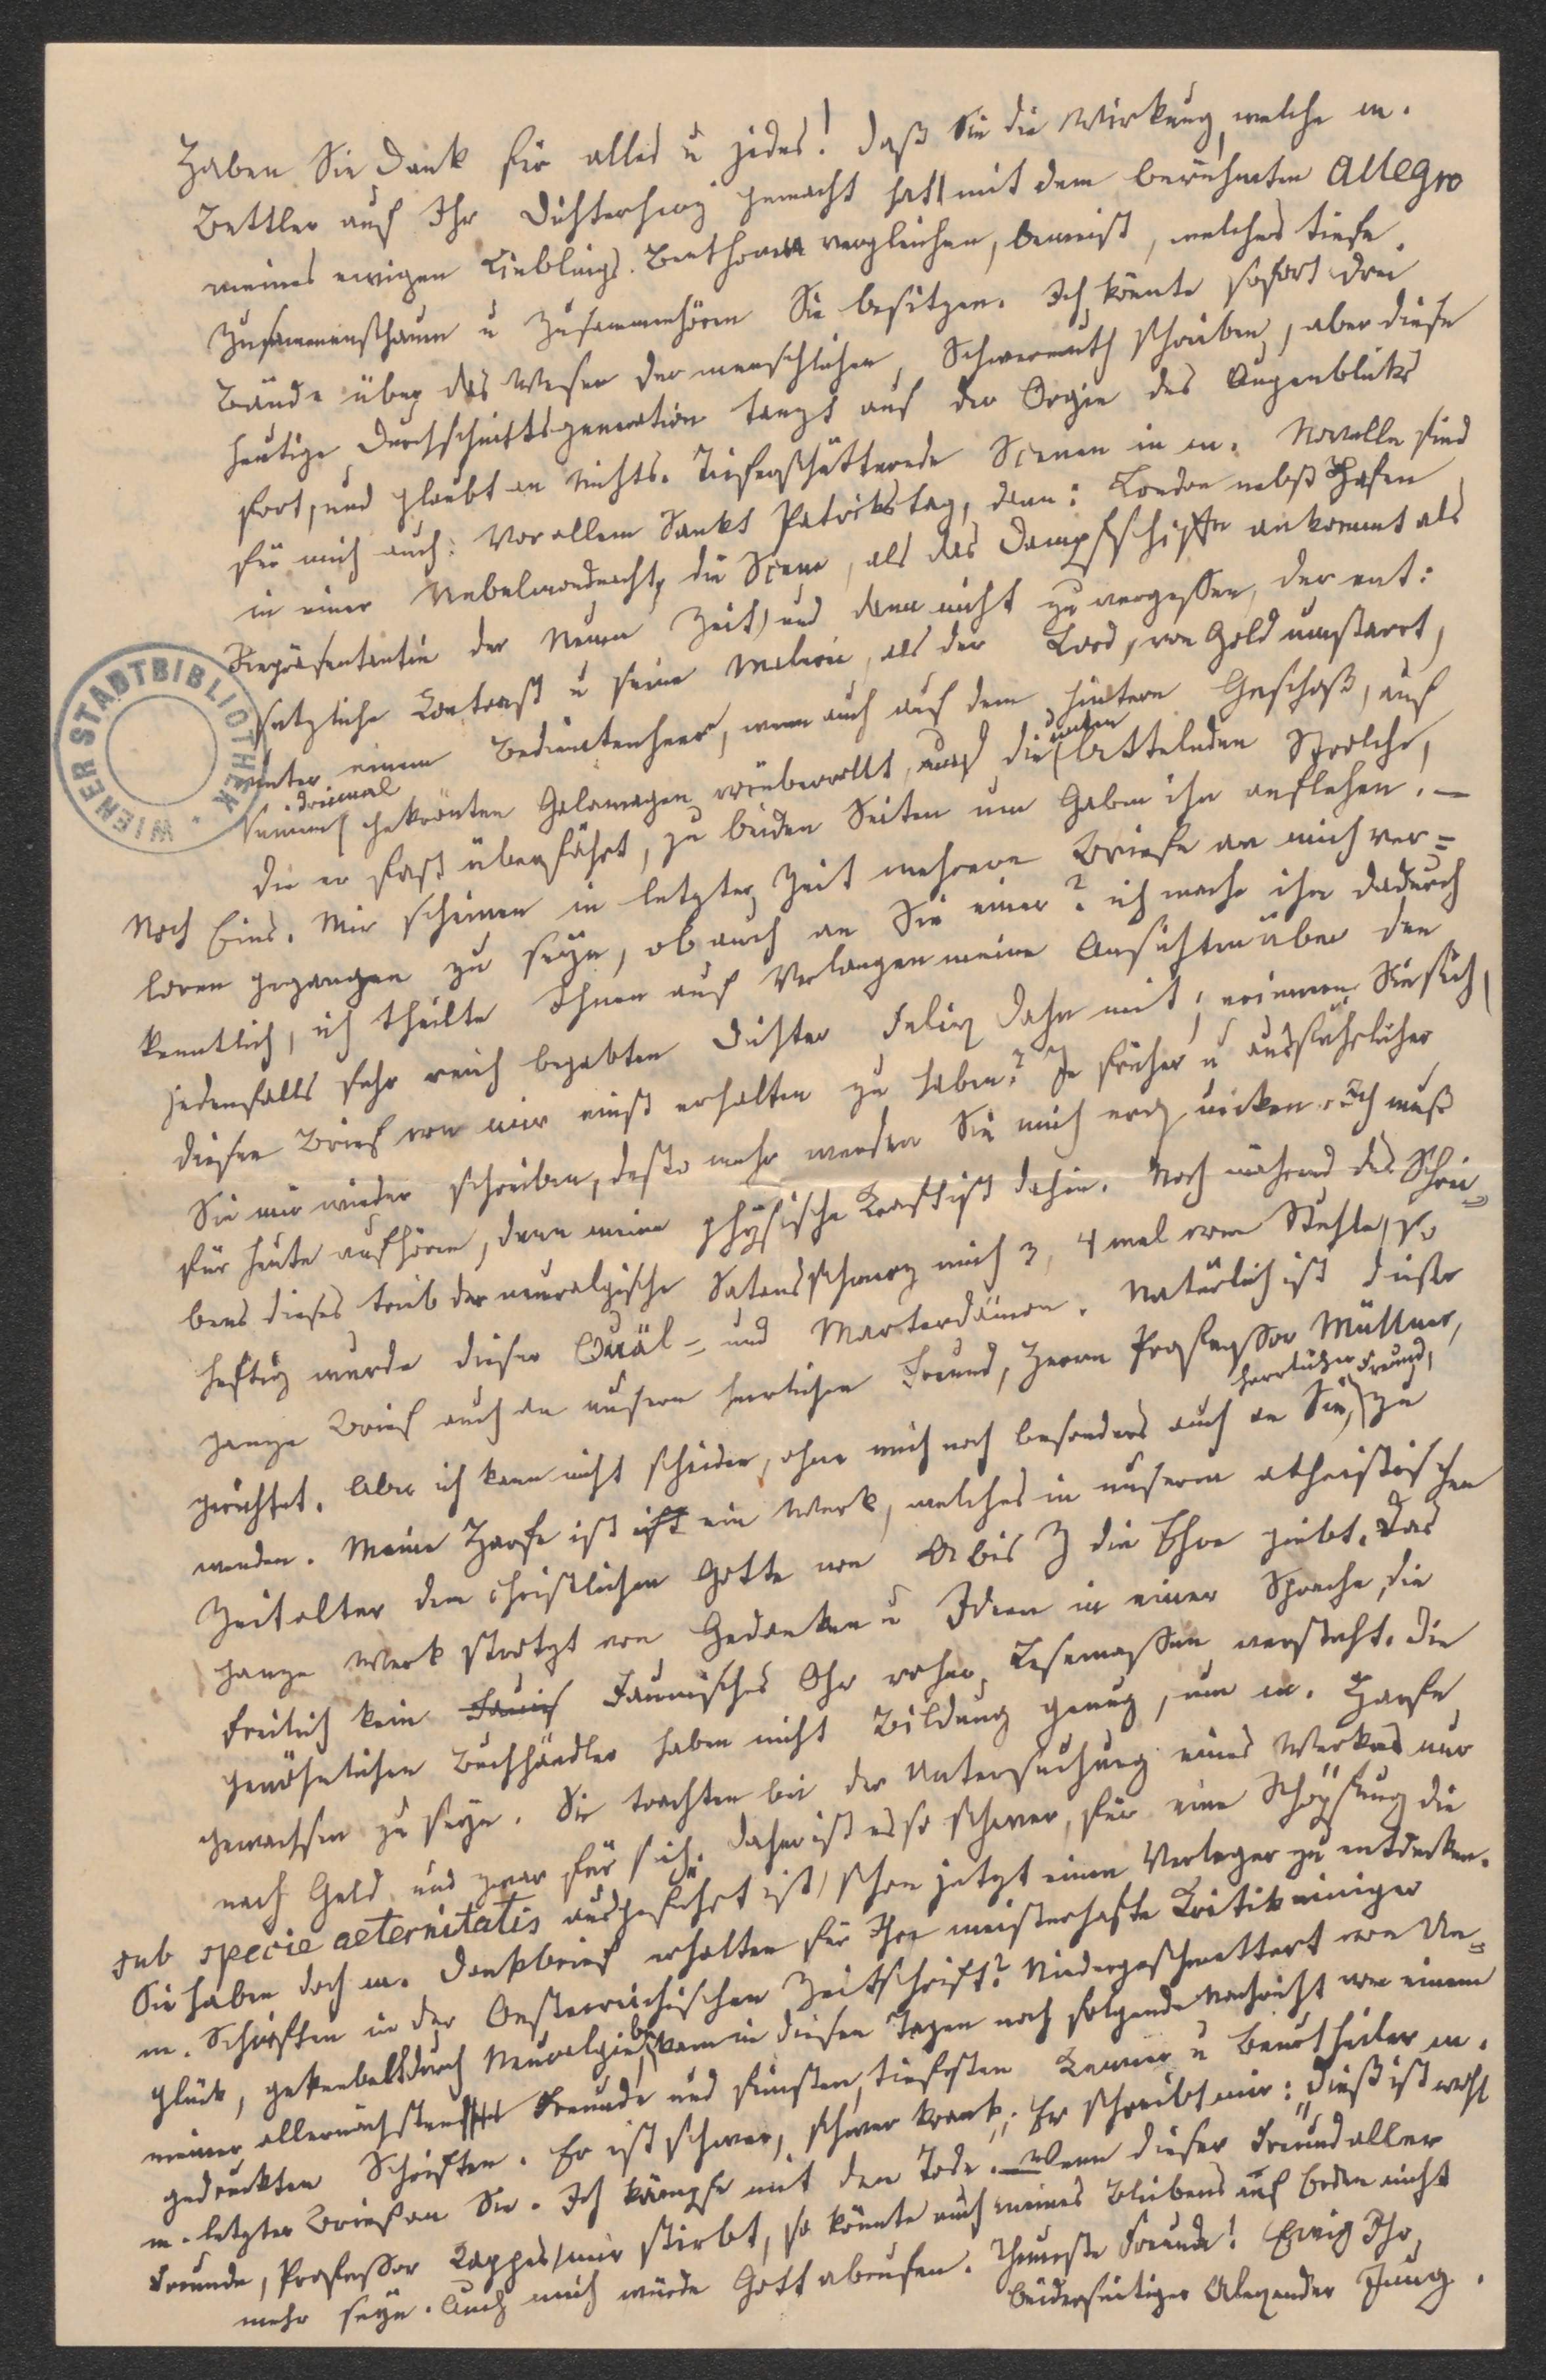 Haben Sie Dank für alles u jedes! Daß Sie die Wirkung, welche m.
Bettler auf Ihr Dichterherz gemacht hat, mit dem berühmten Allegro
meines ewigen Lieblings Beethoven vergleichen, beweist, welches tiefe
Zusammenschauen u Zusammenhören Sie besitzen. Ich könnte sofort drei
Bände über das Wesen der menschlichen Schwermuth schreiben, aber diese
heutige Durchschnittsgeneration tanzt auf der Orgie des Augenblicks
fort, und glaubt an Nichts. Tieferschütternde Scenen in m. Novelle sind
für mich auch: Vor allem Sankt Patrikstag, dann: London nebst Hafen
in einer Nebelmondnacht, die Scene, als das Dampfschiff ankommt als
Repräsentantin der Neuen Zeit, und dann nicht zu vergessen, der ent:
setzliche Contrast u seine Malerei, als der Lord, von Gold umstarrt,
unter einem Bedientenheer, wenn auch auf dem hintern Geschoß, auf
seinem dreimal gekrönten Galawagen vorüberrollt, und die unten bettelnden Strolche,
die er fast überfährt, zu beiden Seiten um Gaben ihn anflehen. —
Noch Eins. Mir scheinen in letzter Zeit mehrere Briefe an mich ver=
loren gegangen zu seyn, ob auch an Sie einer? ich mache ihn dadurch
kenntlich, ich theilte Ihnen auf Verlangen meine Ansichten über den
jedenfalls sehr reich begabten Dichter Felix Dahn mit; erinnern Sie sich,
diesen Brief von mir einst erhalten zu haben? Je früher u ausführlicher
Sie mir wieder schreiben, desto mehr werden Sie mich erquicken. Ich muß
für heute aufhören, denn meine physische Kraft ist dahin. Noch während des Schrei=
bens dieses trieb der neuralgische Satansschmerz mich 3, 4 mal vom Stuhle, so
heftig wurde dieser Quäl= und Marterdämon. Natürlich ist dieser
ganze Brief auch an unsern herrlichen Freund, Herrn Professor Müllner,
gerichtet. Aber ich kann nicht scheiden, ohne mich noch besonders auch an Sie, herrlicher Freund, zu
wenden. Meine Harfe ist ist ein Werk, welches in unserem atheistischen
Zeitalter dem christlichen Gotte von A bis Z die Ehre giebt. Das
ganze Werk strotzt von Gedanken u Ideen in einer Sprache, die
freilich kein Faunisches Ohr roher Lesemassen versteht. Die
gewöhnlichen Buchhändler haben nicht Bildung genug, um m. Harfe
gewachsen zu seyn. Sie trachten bei der Untersuchung eines Werkes nur
nach Geld und zwar für sich. Daher ist es so schwer, für eine Schöpfung die
sub specie aeternitatis ausgeführt ist, schon jetzt einen Verleger zu entdecken.
Sie haben doch m. Dankbrief erhalten für Ihre meisterhafte Kritik einiger
m. Schriften in der Oesterreichischen Zeitschrift? Niedergeschmettert von Un=
glück, geknebelt durch Neuralgie, kam in diesen Tagen noch folgende Nachricht von einem
meiner allernächsten Freunde und feinsten, tiefsten Kenner u Beurtheiler m.
gedruckten Schriften. Er ist schwer, schwer krank; Er schreibt mir: „Dieß ist wohl
m. letzter Brief an Sie. Ich kämpfe mit dem Tode. — Wenn dieser Freund aller
Freunde, Professor Kappes, mir stirbt, so könnte auch meines Bleibens auf Erden nicht
mehr seyn. Auch mich würde Gott abrufen. Theuerste Freunde! Ewig Ihr,
beiderseitiger Alexander Jung.
WIENER STADTBIBLIOTHEK